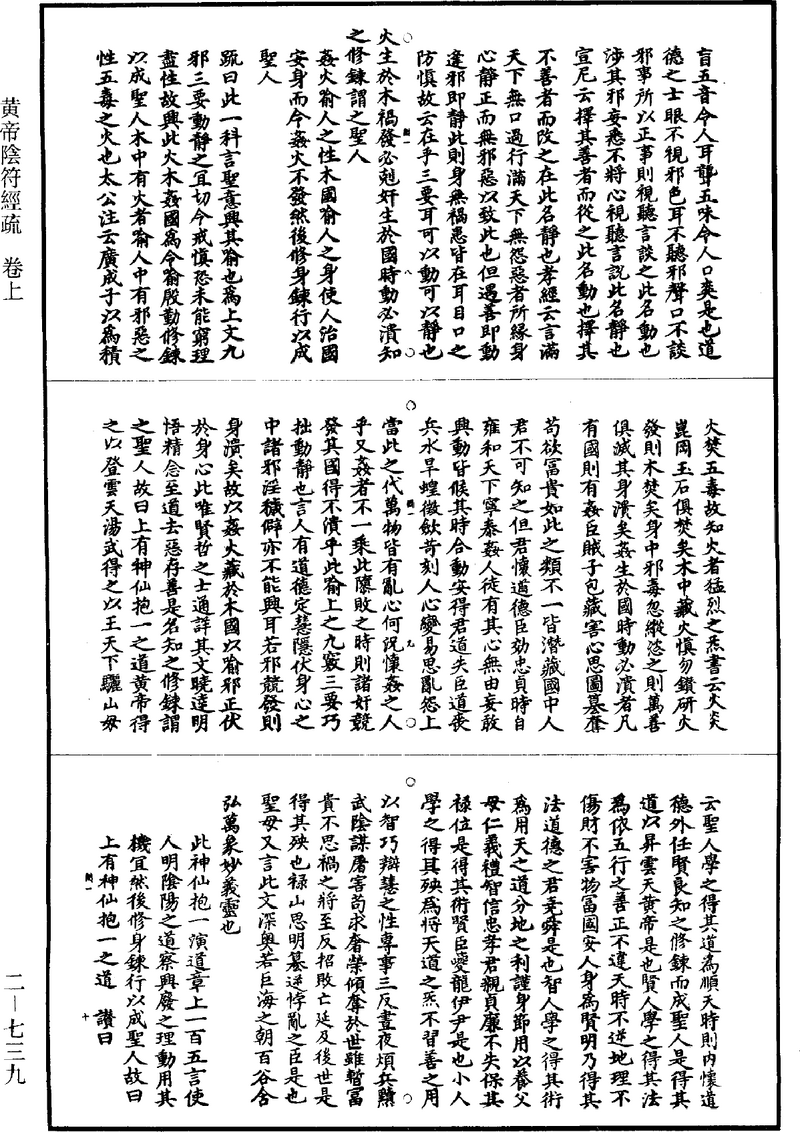 黄帝陰符經疏　卷上
盲五音令人耳聾五味令人口爽是也道
德之士眼不視邪色耳不聽邪聲口不談
邪事所以正事則視聽言談之此名動也
涉其邪妄悉不將心視聽言説此名靜也
宣尼云擇其善者而從之此名動也擇其
不善者而改之在此名靜也孝經云言滿
天下無口過行滿天下無怨惡者所緣身
心靜正而無邪惡以致此也但遇善即動
逢邪即靜此則身無禍患皆在耳目口之
防慎故云在乎三要耳可以動可以靜也
火生於木禍發必剋奸生於國時動必潰知
之修鍊謂之聖人
姦火喻人之性木國喻人之身使人治國
安身而令姦火不發然後修身鍊行以成
聖人
疏曰此一科言聖意興其喻也爲上文九
邪三要動靜之宜切令戒慎恐未能窮理
盡性故興此火木姦國爲令喻殷勤修鍊
以成聖人木中有火者喻人中有邪惡之
性五毒之火也太公注云廣成子以爲積
火焚五毒故知火者猛烈之炁書云火炎
崑岡玉石俱焚矣木中藏火慎勿鑽研火
發則木焚矣身中邪毒忽縱恣之則萬善
俱滅其身潰矣姦生於國時動必潰者凡
有國則有姦臣賊子包藏害心思圖篡奪
苟欲富貴如此之類不一皆潛藏國中人
君不可知之但君懷道德臣効忠貞時自
雍和天下寧泰姦人徒有其心無由妄敢
興動皆候其時合動安得君道失臣道喪
兵水旱蝗徵歛苛刻人心變易思亂怨上
當此之代萬物皆有亂心何況懷姦之人
乎又姦者不一乘此隳敗之時則諸奸競
發其國得不潰乎此喻上之九竅三要巧
拙動靜也言人有道德定慧隱伏身心之
中諸邪淫穢僻亦不能興耳若邪競發則
身潰矣故以姦火藏於木國以喻邪正伏
於身心此唯賢哲之士通詳其文曉達明
悟精念至道去惡存善是名知之修鍊謂
之聖人故曰上有神仙抱一之道黄帝得
之以登雲天湯武得之以王天下驪山母
云聖人學之得其道爲順天時則内懷道
德外任賢良知之修鍊而成聖人是得其
道以昇雲天黄帝是也賢人學之得其法
爲依五行之善正不違天時不逆地理不
傷財不害物富國安人身爲賢明乃得其
法道德之君堯舜是也智人學之得其術
爲用天之道分地之利謹身節用以養父
母仁義禮智信忠孝君親貞廉不失保其
禄位是得其術賢臣夔龍伊尹是也小人
學之得其殃爲將天道之炁不習善之用
以智巧辯慧之性專事三反晝夜煩兵黷
武陰謀屠害苟求奢榮傾奪於世雖暫富
貴不思禍之將至反招敗亡延及後世是
得其殃也禄山思明篡逆悖亂之臣是也
聖母又言此文深奧若巨海之朝百谷含
弘萬象妙義靈也
此神仙抱一演道章上一百五言使
人明陰陽之道察興廢之理動用其
機宜然後修身鍊行以成聖人故曰
上有神仙抱一之道　讃曰
二—七三九